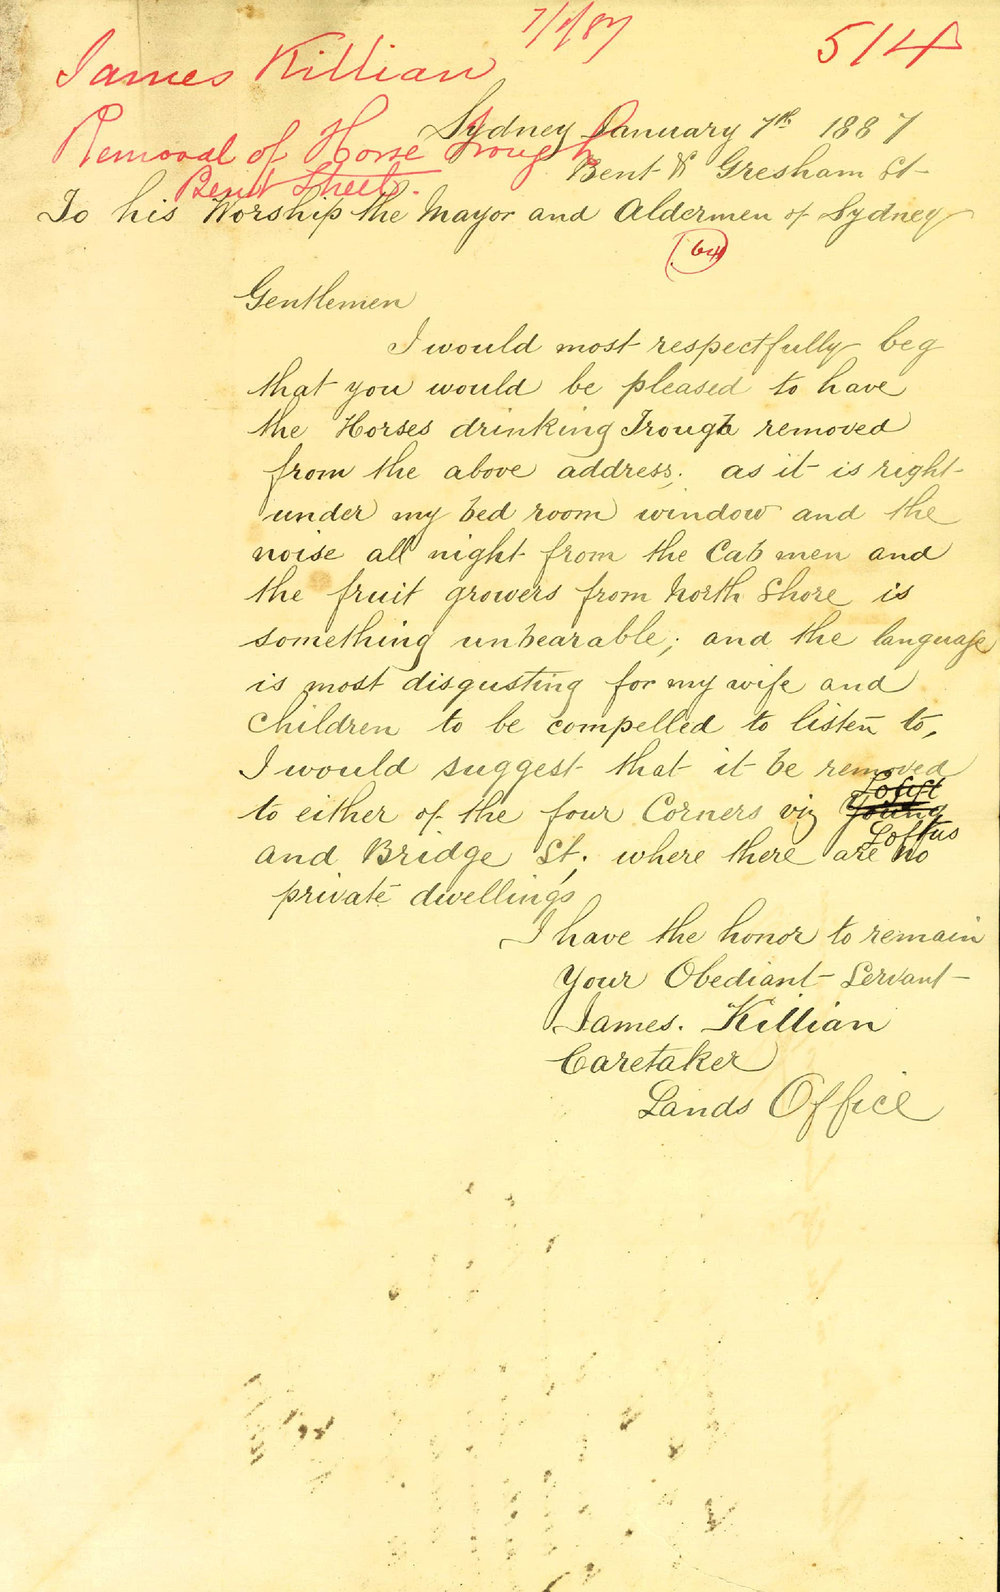 7/1/87
James Killian
514
Removal of Horse Trough
Bent Street.
Sydney January 7th 1887
Bent & Gresham St
To his Worship the Mayor and Aldermen of Sydney
64
Gentlemen
I would most respectfully beg
that you would be pleased to have
the Horses drinking Trough removed
from the above address; as it is right
under my bed room window and the
noise all night from the Cab men and
the fruit growers from North Shore is
something unbearable; and the language
is most disgusting for my wife and
Children to be compelled to listen to,
I would suggest that it be removed
to either of the four Corners viz Young Loftus
and Bridge St. where there are no
private dwellings
I have the honor to remain
Your Obediant Servant
James. Killian
Caretaker
Lands Office